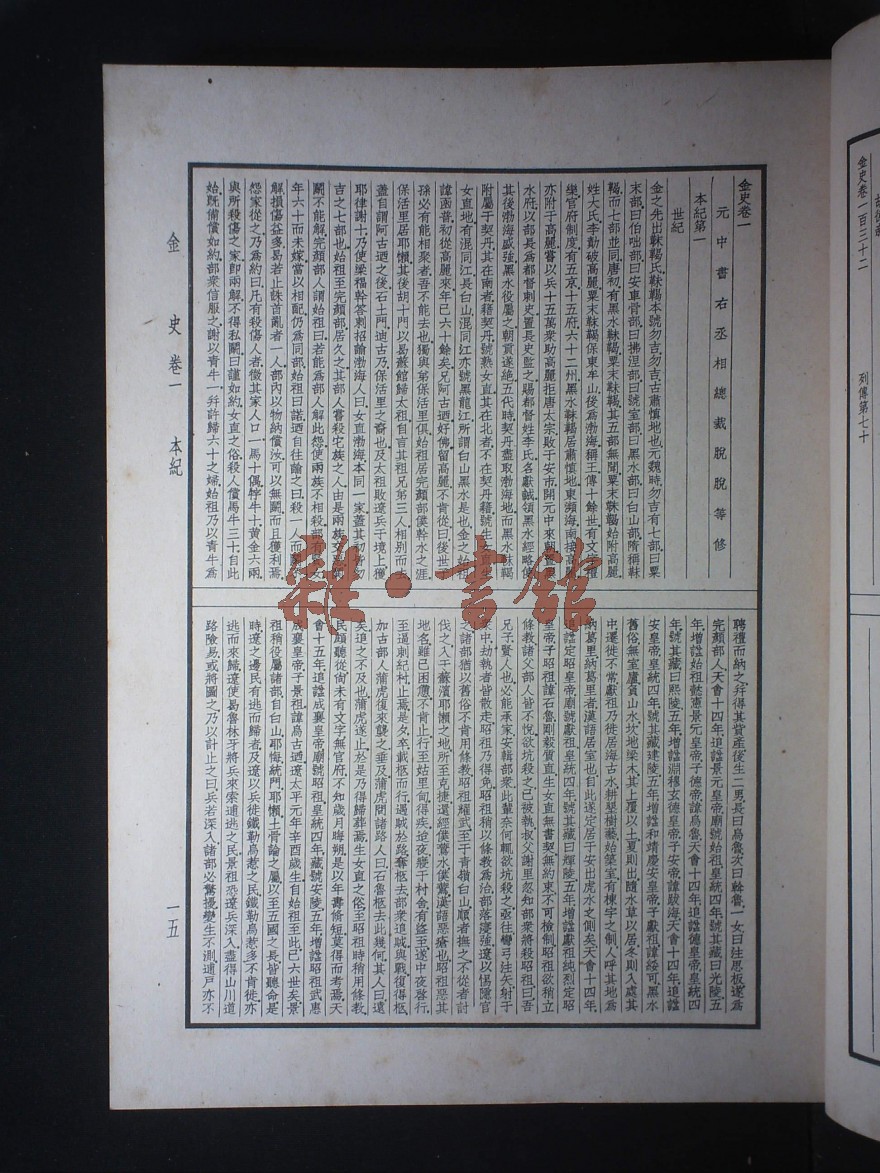 金史卷一
元中書右丞相總裁脫脫等修
本紀第一
世紀
金之先出靺鞨氏靺鞨本號勿吉勿吉古肅慎地也元魏時勿吉有七部曰粟
末部曰伯咄部曰安車骨部曰拂涅部曰號室部曰黑水部曰白山部隋稱靺
鞨而七部並同唐初有黑水靺鞨粟末靺鞨其五部無聞粟末靺鞨始附高麗
姓大氏李勣破高麗粟末靺鞨保東牟山後為渤海稱王傳十餘世有文字禮
樂官府制度有五京十五府六十二州黑水靺鞨居肅慎地東瀕海南接高麗
亦附于高麗嘗以兵十五萬眾助高麗拒唐太宗敗于安市開元中來朝置黑
水府以部長為都督刺史置長史監之賜都督姓李氏名獻誠領黑水經略使
其後渤海盛強黑水役屬之朝貢遂絕五代時契丹盡取渤海地而黑水靺鞨
附屬于契丹其在南者籍契丹號熟女直其在北者不在契丹籍號生女直生
女直地有混同江長白山混同江亦號黑龍江所謂白山黑水是也金之始祖
諱函普初從高麗來年已六十餘矣兄阿古迺好佛留高麗不肯從曰後世子
孫必有能相聚者吾不能去也獨與弟保活里俱始祖居完顏部僕幹水之涯
保活里居耶懶其後胡十門以曷蘇館歸太祖自言其祖兄弟三人相別而去
蓋自謂阿古迺之後石土門迪古乃保活里之裔也及太祖敗遼兵于境上獲
耶律謝十乃使梁福斡答剌招諭渤海人曰女直渤海本同一家蓋其初皆勿
吉之七部也始祖至完顏部居久之其部人嘗殺它族之人由是兩族交惡鬨
鬭不能解完顏部人謂始祖曰若能為部人解此怨使兩族不相殺部有賢女
年六十而未嫁當以相配仍為同部始祖曰諾迺自往諭之曰殺一人而鬭不
解損傷益多曷若止誅首亂者一人部內以物納償汝可以無鬭而且獲利焉
怨家從之乃為約曰凡有殺傷人者徵其家人口一馬十偶牸牛十黃金六兩
與所殺傷之家即兩解不得私鬭曰謹如約女直之俗殺人償馬牛三十自此
始既備償如約部眾信服之謝以青牛一并許歸六十之婦始祖乃以青牛為
聘禮而納之并得其貲產後生二男長曰烏魯次曰斡魯一女曰注思板遂為
完顏部人天會十四年追諡景元皇帝廟號始祖皇統四年號其藏曰光陵五
年增諡始祖懿憲景元皇帝子德帝諱烏魯天會十四年追諡德皇帝皇統四
年號其藏曰熙陵五年增諡淵穆玄德皇帝子安帝諱跋海天會十四年追諡
安皇帝皇統四年號其藏建陵五年增諡和靖慶安皇帝子獻祖諱綏可黑水
舊俗無室廬負山水坎地梁木其上覆以土夏則出隨水草以居冬則入處其
中遷徙不常獻祖乃徙居海古水耕墾樹藝始築室有棟宇之制人呼其地為
納葛里納葛里者漢語居室也自此遂定居于安出虎水之側矣天會十四年
追諡定昭皇帝廟號獻祖皇統四年號其藏曰輝陵五年增諡獻祖純烈定昭
皇帝子昭祖諱石魯剛毅質直生女直無書契無約束不可檢制昭祖欲稍立
條教諸父部人皆不悅欲坑殺之已被執叔父謝里忽知部眾將殺昭祖曰吾
兄子賢人也必能承家安輯部眾此輩奈何輒欲坑殺之亟往彎弓注矢射于
眾中劫執者皆散走昭祖乃得免昭祖稍以條教為治部落寖強遼以惕隱官
之諸部猶以舊俗不肯用條教昭祖耀武至于青嶺白山順者撫之不從者討
伐之入于蘇濱耶懶之地所至克捷還經僕鷰水僕鷰漢語惡瘡也昭祖惡其
地名雖已困憊不肯止行至姑里甸得疾迨夜寢于村舍有盜至遂中夜啓行
至逼剌紀村止焉是夕卒載柩而行遇賊於路奪柩去部眾追賊與戰復得柩
加古部人蒲虎復來襲之垂及蒲虎問諸路人曰石魯柩去此幾何其人曰遠
矣追之不及也蒲虎遂止於是乃得歸葬焉生女直之俗至昭祖時稍用條教
民頗聽從尚未有文字無官府不知歲月晦朔是以年壽脩短莫得而考焉天
會十五年追諡成襄皇帝廟號昭祖皇統四年藏號安陵五年增諡昭祖武惠
成襄皇帝子景祖諱烏古迺遼太平元年辛酉歲生自始祖至此已六世矣景
祖稍役屬諸部自白山耶悔統門耶懶土骨論之屬以至五國之長皆聽命是
時遼之邊民有逃而歸者及遼以兵徙鐵勒烏惹之民鐵勒烏惹多不肯徙亦
逃而來歸遼使曷魯林牙將兵來索逋逃之民景祖恐遼兵深入盡得山川道
路險易或將圖之乃以計止之曰兵若深入諸部必驚擾變生不測逋戶亦不
金史卷一 本紀
一五
金史卷一百三十二 列傳第七十